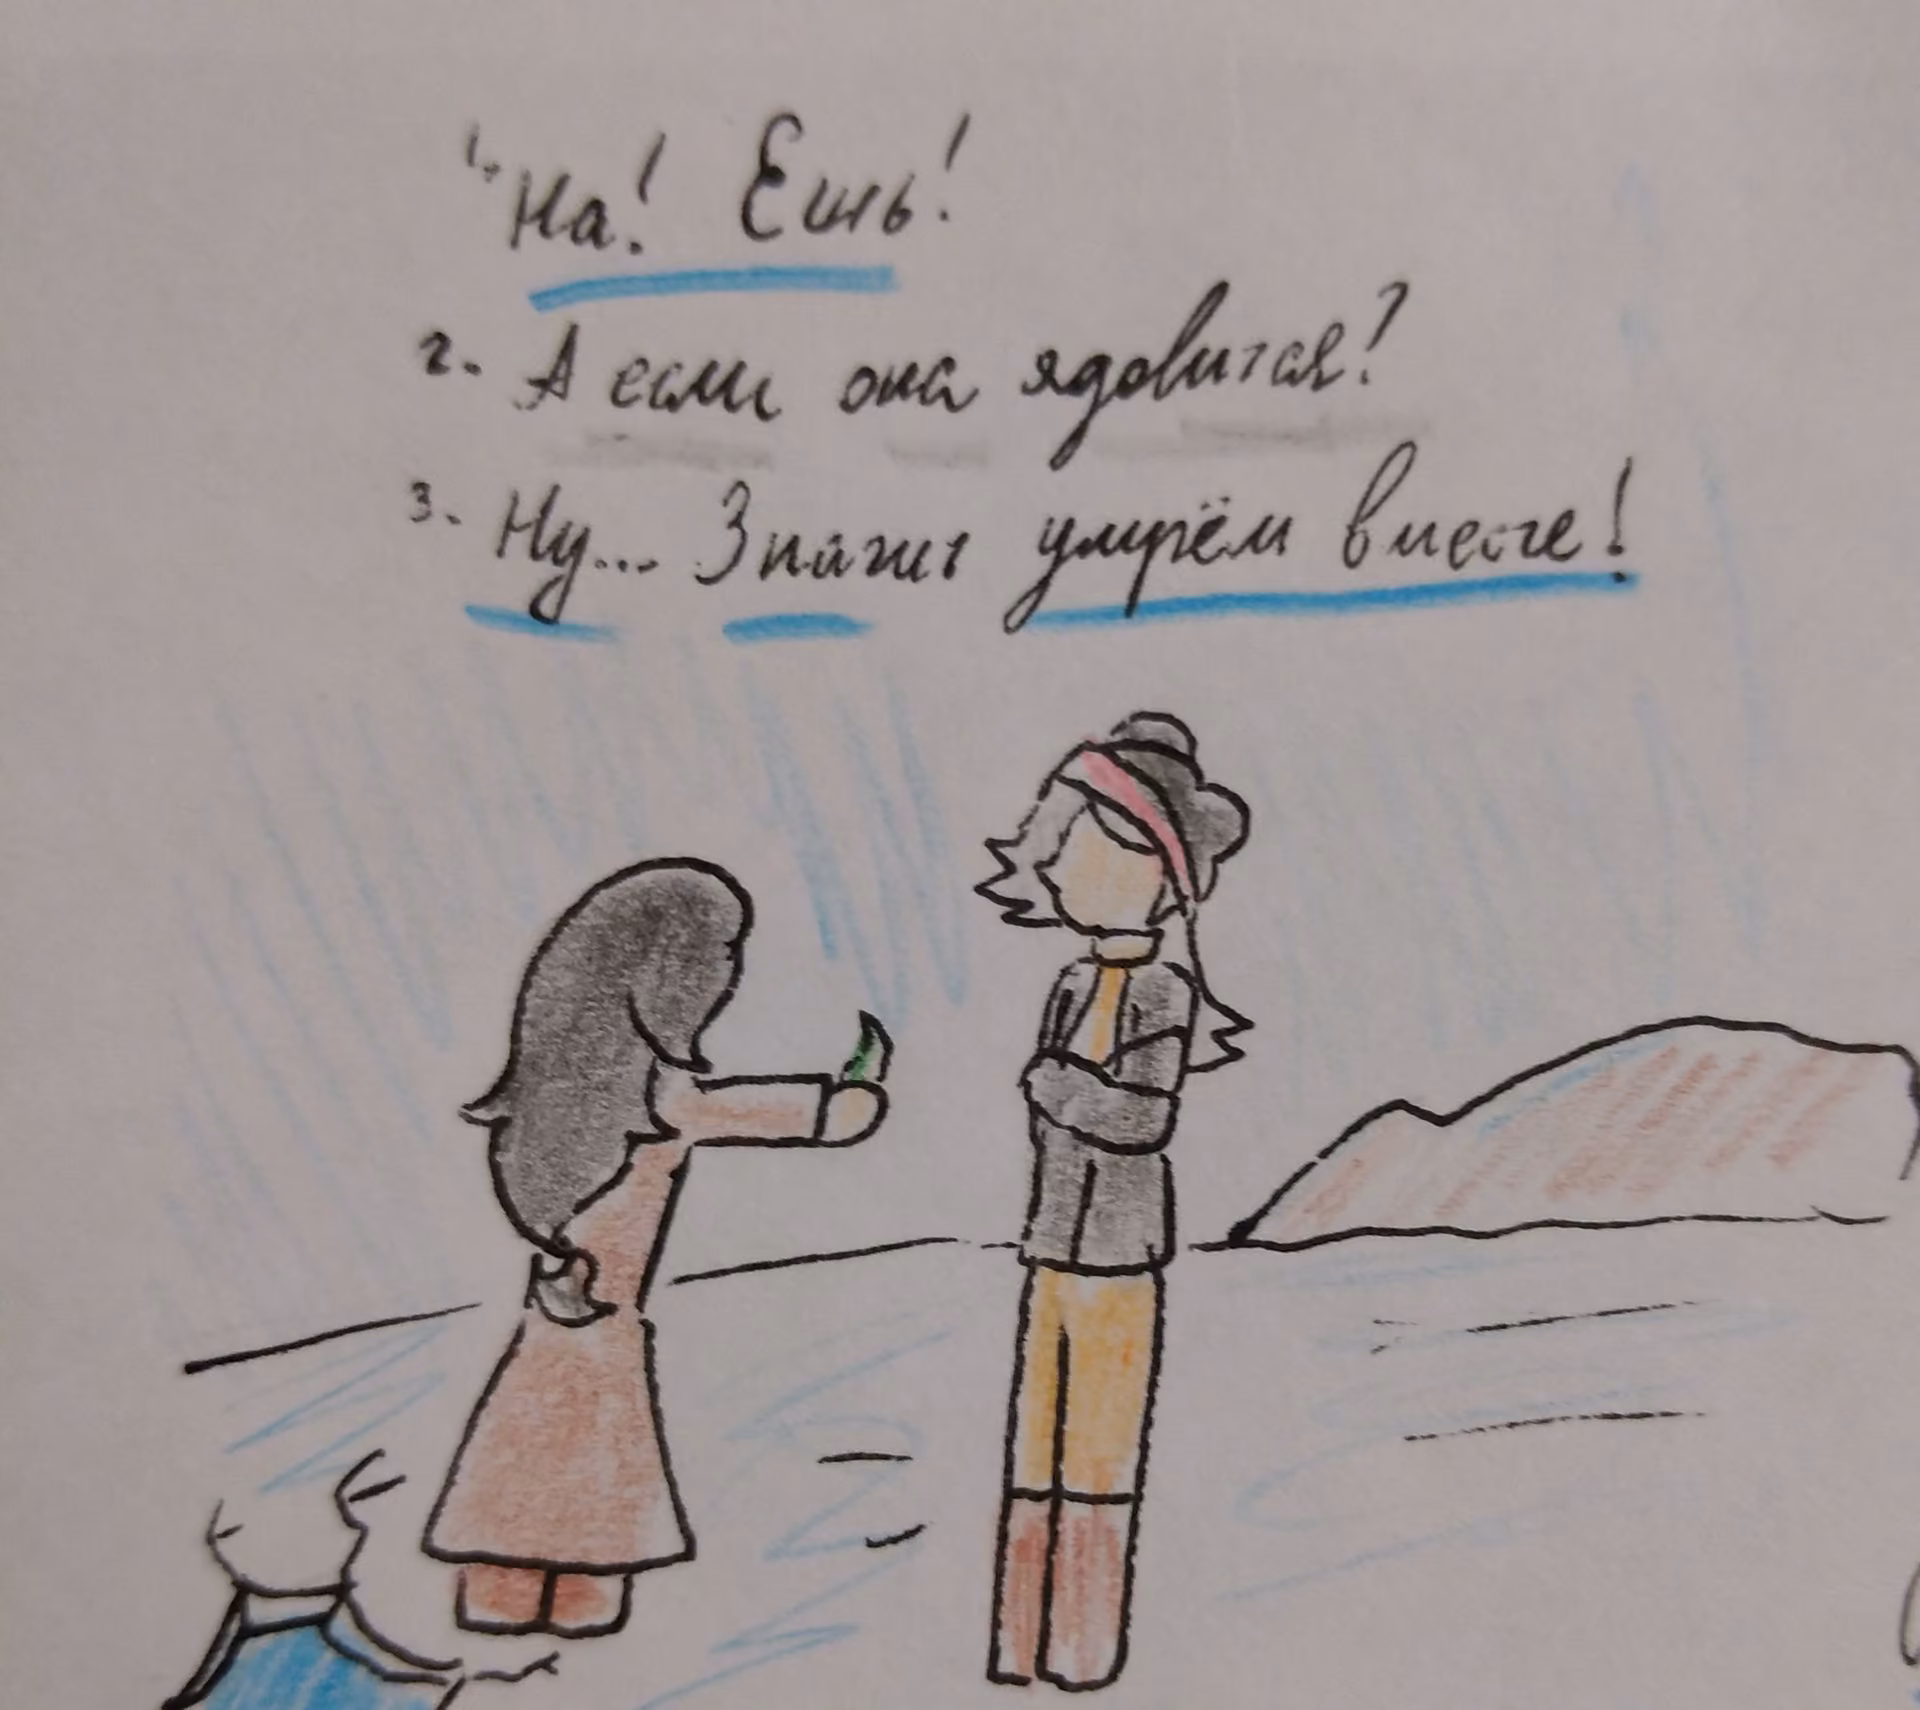 1. На! Ешь!
2. А если она ядовитая?
3. Ну... Значит умрём вместе!